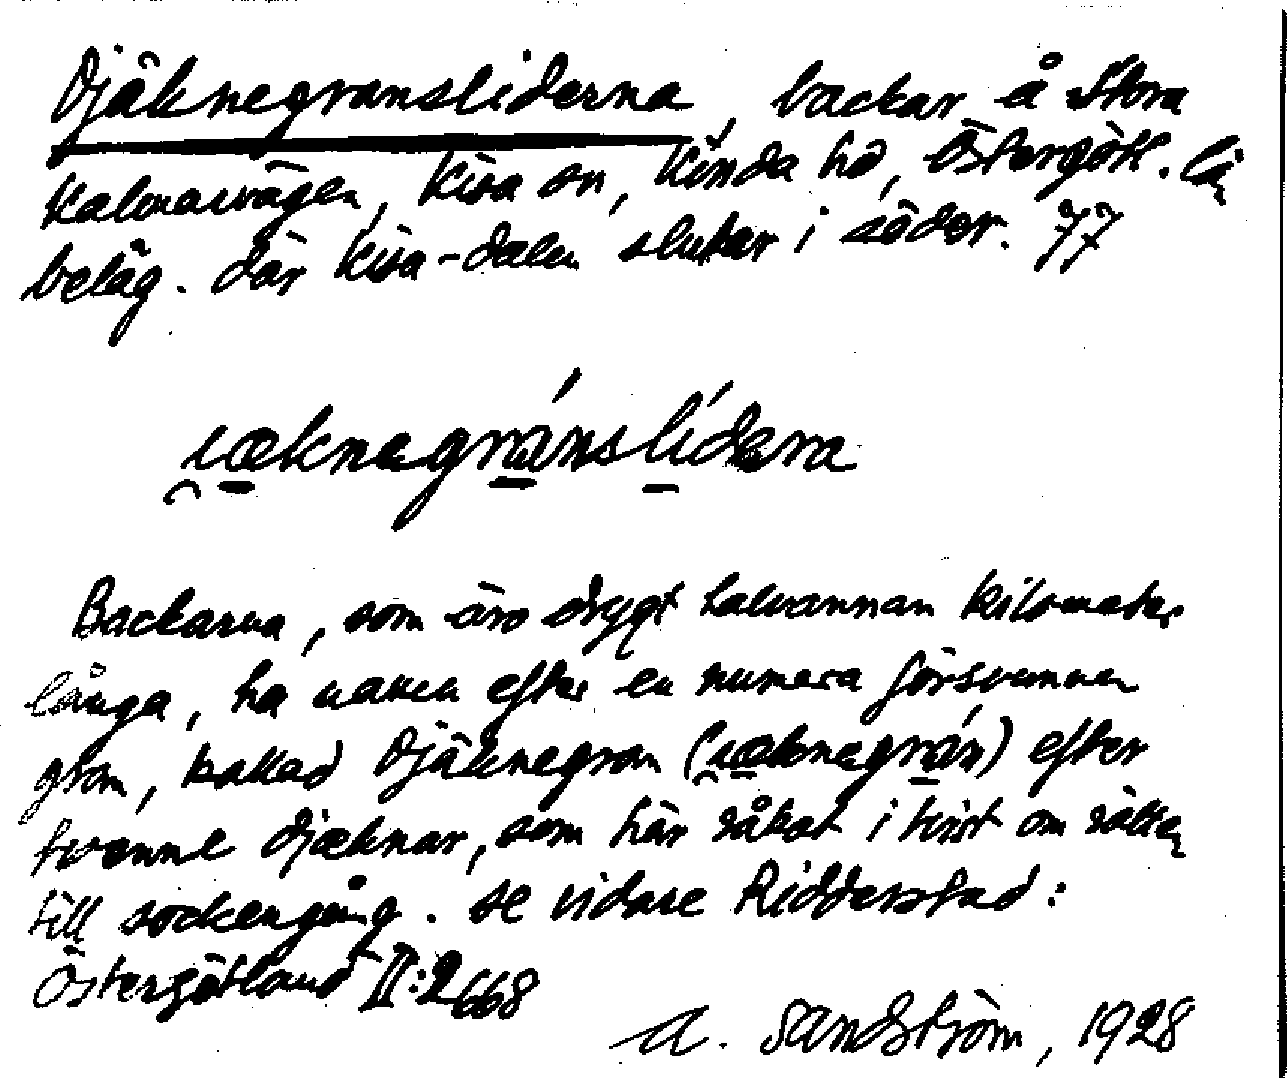 Djäknegransliderna, backar å Stora
Kalmarvägen, Kisa sn, Kinda hd, Östergötl. län
beläg. där Kisa-dalen slutar i söder. 77
ɩ̯æknegránslídera
Backarna, som äro drygt halvannan kilometer
långa, ha namn efter en numera försvunnen
gran, kallad Djäknegran (ɩ̯æknegrán) efter
tvenne djæknar, som här råkat i tvist om rätten
till sockengång. Se vidare Ridderstad:
Östergötland II:2 668
A. Sandström, 1928